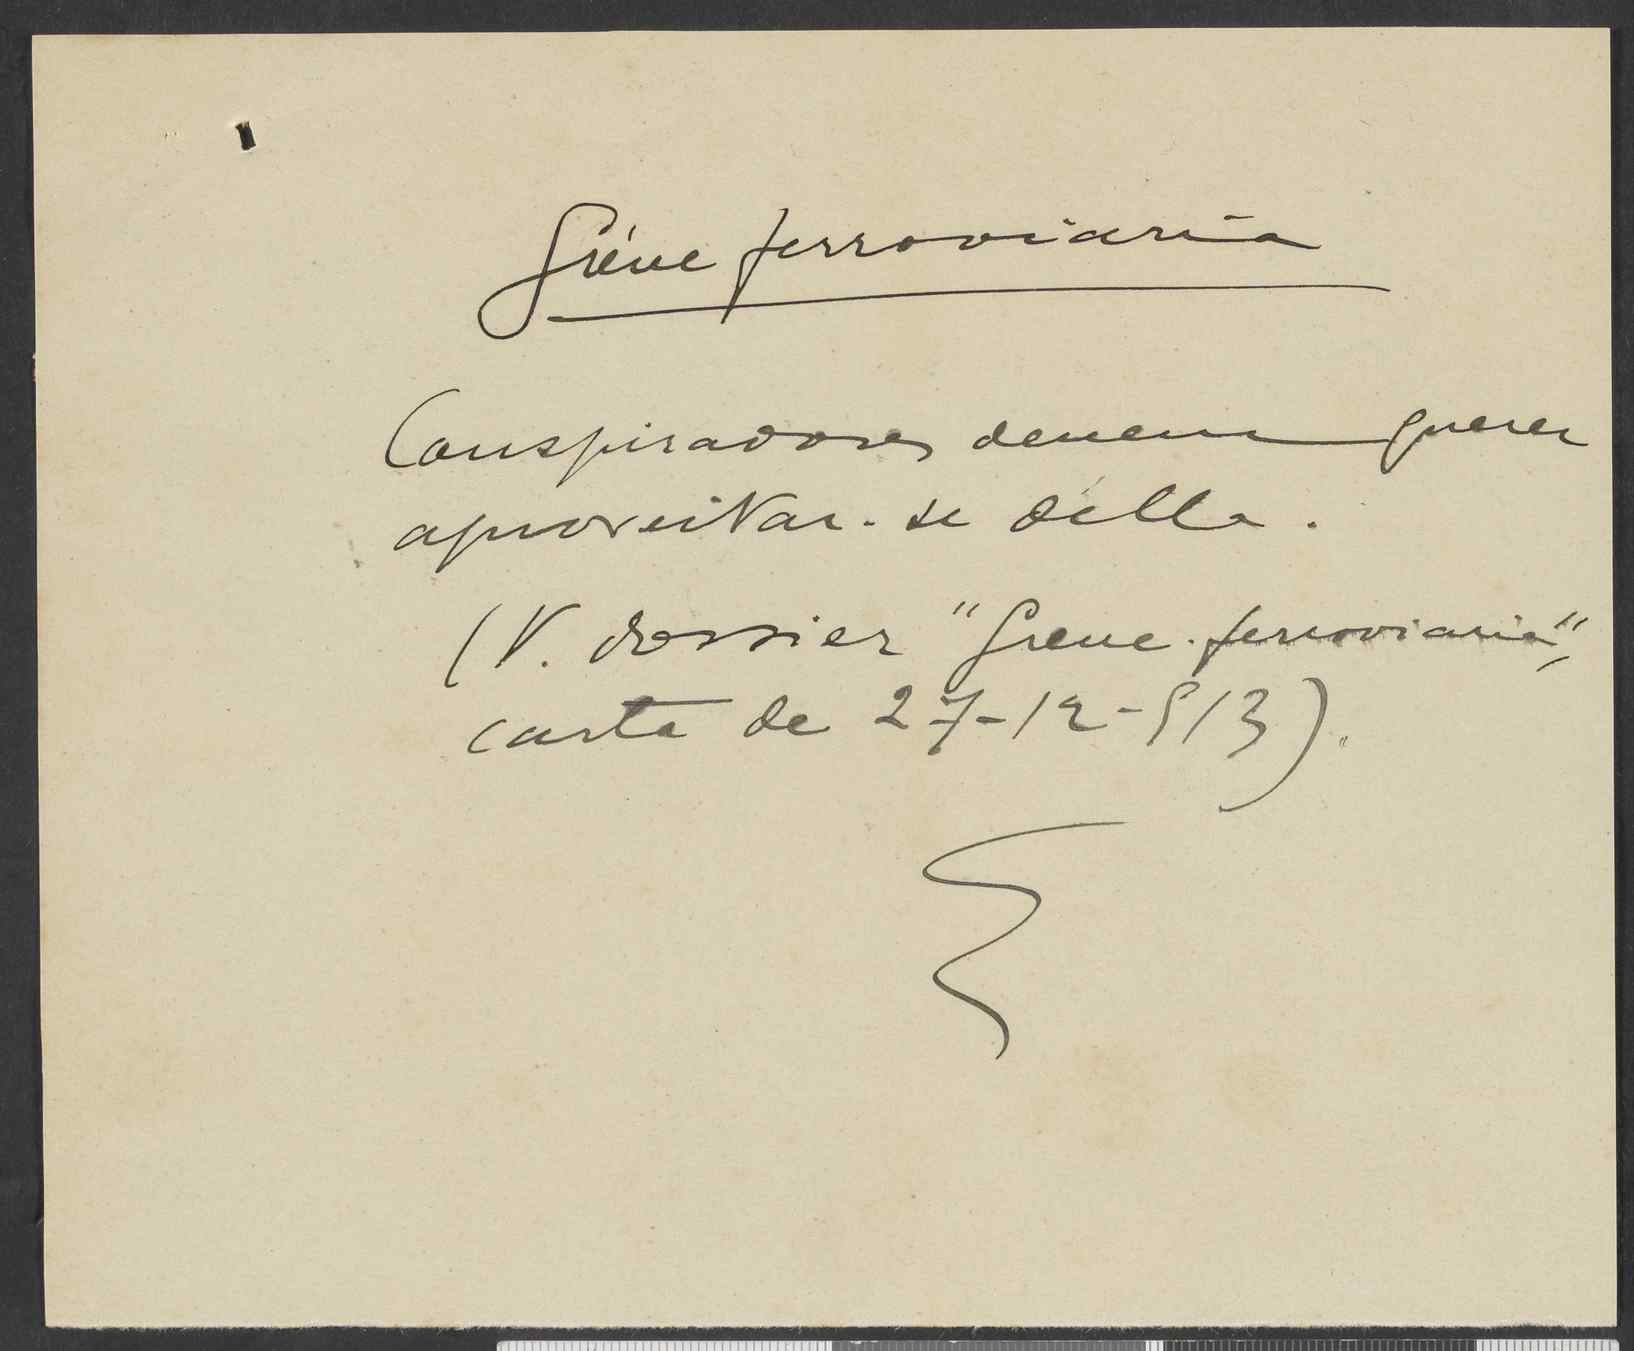 Gréve ferroviaria
Conspiradores devem querer
aproveitar-se délla.
(V. dossier "Greve ferroviaria",
carta de 27-12-913).